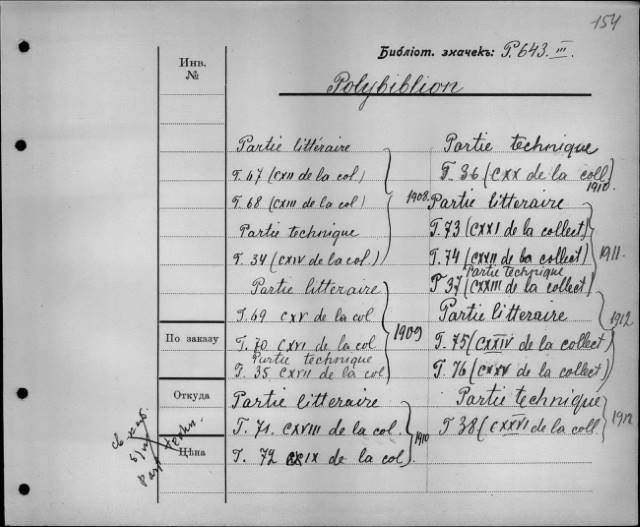 154
Библіот. значекъ: P.643.III.
Инв.
№
Polybiblion
Partie littéraire
T. 67 (CXII de la col)
T. 68 (CXIII de la col) 1908.
Partie technique
T. 34 (CXIV de la col.)
Partie litteraire
T. 69 CXV de la col
T. 70 CXVI de la col 1909
Partie technique
T. 35 CXVII de la col
Partie litteraire
T. 71. CXVIII de la col.
T. 72 CXIX de la col 1910
Partie technique
T. 36 (CXX de la coll)
1910.
Partie litteraire
T. 73 (CXXI de la collect)
T. 74 (CXXII de la collect) 1911.
Partie technique
T 37 (CXXIII de la collect)
Partie litteraire 1912
T. 75 (CXXIV de la collect)
T. 76 (CXXV de la collect)
Partie technique
T 38 (CXXVI de la coll. 1912
По заказу
Откуда
Цѣна